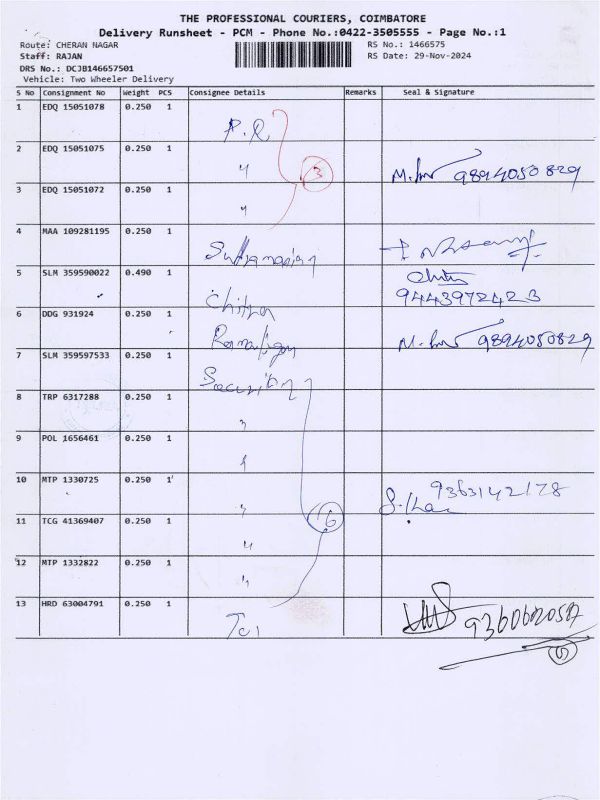 THE PROFESSIONAL COURIERS, COIMBATORE
Delivery Runsheet - PCM - Phone No.:0422-3505555 - Page No.:1
Route: CHERAN NAGAR RS No.: 1466575
Staff: RAJAN RS Date: 29-Nov-2024
DRS No.: DCJB146657501
Vehicle: Two Wheeler Delivery
S No Consignment No Weight PCS Consignee Details Remarks Seal & Signature
1 EDQ 15051078 0.250 1
2 EDQ 15051075 0.250 1 " 3 9894050829
3 EDQ 15051072 0.250 1 "
4 MAA 109281195 0.250 1
5 SLM 359590022 0.490 1 Chitra 9443972423
6 DDG 931924 0.250 1 9894050829
7 SLM 359597533 0.250 1 Security
8 TRP 6317288 0.250 1 "
9 POL 1656461 0.250 1
10 MTP 1330725 0.250 1 " 9363142178
11 TCG 41369407 0.250 1 " 6
12 MTP 1332822 0.250 1 "
13 HRD 63004791 0.250 1